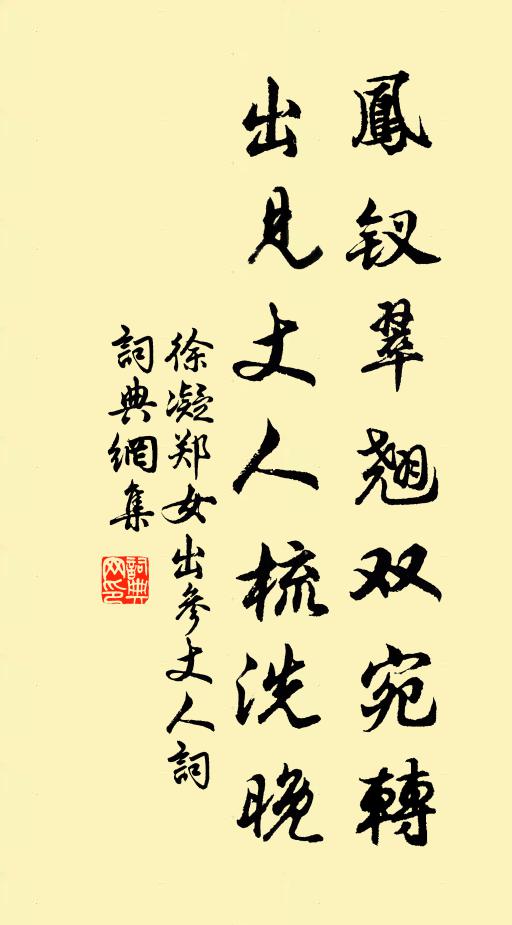 鳳钗翠翹双宛轉
出見丈人梳洗晚
徐凝郑女出參丈人詞
詞典網集
詞典网印